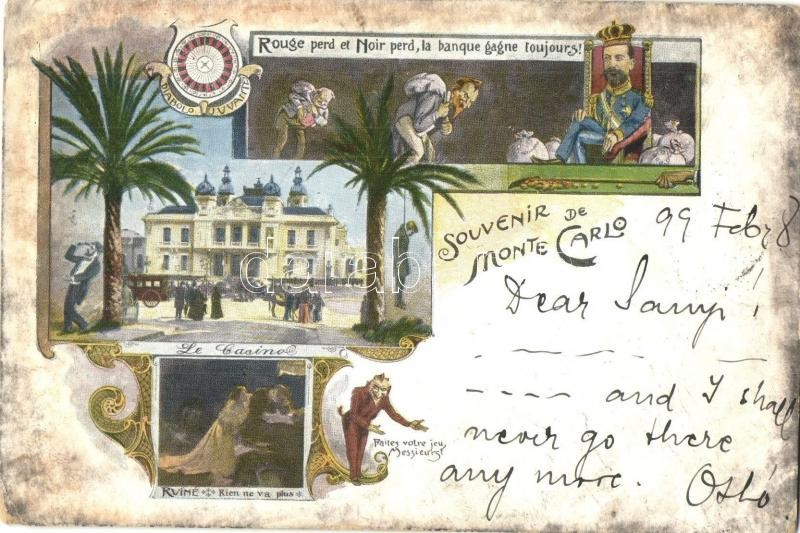 Rouge perd et Noir perd, la banque gagne toujours!
DIABOLO JUVANTE
SOUVENIR DE
MONTE CARLO
99 Feb
Dear
!
and I shall
never go there
any more.
Le Casino
Faites votre jeu,
Messieurs!
RUINE Rien ne va plus
darabanth